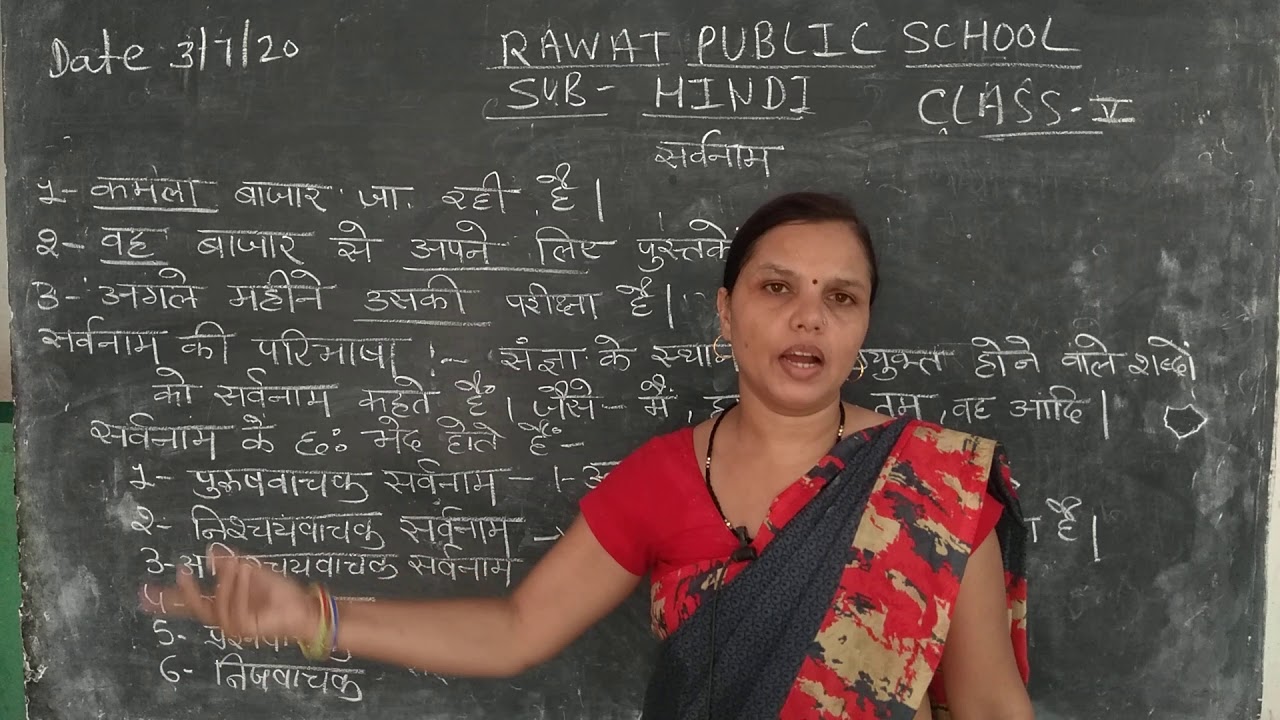 Date 3/7/20
RAWAT PUBLIC SCHOOL
SUB- HINDI
CLASS-V
सर्वनाम
१- कमला बाजार जा रही है।
२- वह बाजार से अपने लिए पुस्तकें
३- अगले महीने उसकी परीक्षा है।
सर्वनाम की परिभाषा :- संज्ञा के होने वाले शब्दों
को सर्वनाम कहते हैं। जैसे- मैं, तुम, वह आदि।
सर्वनाम के ६ः भेद होते हैं-
१- पुरुषवाचक सर्वनाम - 1-
२- निश्चयवाचक सर्वनाम → है।
३- सर्वनाम
४-
5-
६- निजवाचक